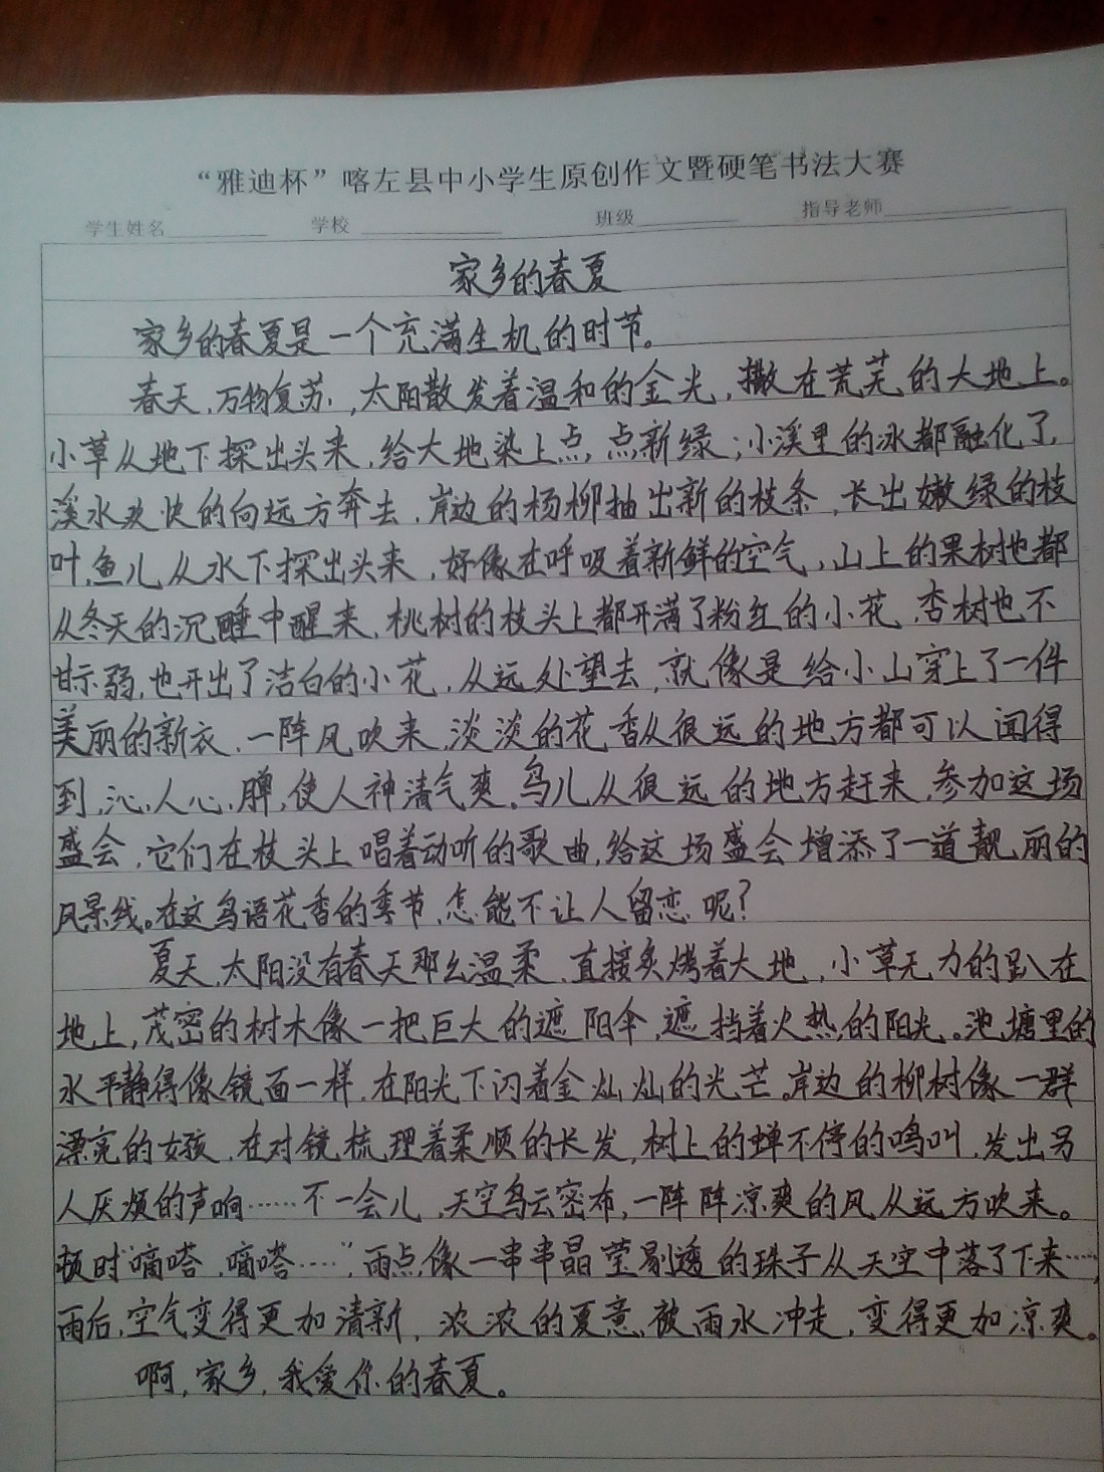 “雅迪杯”喀左县中小学生原创作文暨硬笔书法大赛
学生姓名 学校 班级 指导老师
家乡的春夏
家乡的春夏是一个充满生机的时节。
春天,万物复苏,太阳散发着温和的金光,撒在荒芜的大地上。
小草从地下探出头来,给大地染上点点新绿;小溪里的冰都融化了,
溪水欢快的向远方奔去,岸边的杨柳抽出新的枝条,长出嫩绿的枝
叶,鱼儿从水下探出头来,好像在呼吸着新鲜的空气,山上的果树也都
从冬天的沉睡中醒来,桃树的枝头上都开满了粉红的小花,杏树也不
甘示弱,也开出了洁白的小花,从远处望去,就像是给小山穿上了一件
美丽的新衣,一阵风吹来,淡淡的花香从很远的地方都可以闻得
到,沁人心脾,使人神清气爽,鸟儿从很远的地方赶来,参加这场
盛会,它们在枝头上唱着动听的歌曲,给这场盛会增添了一道靓丽的
风景线。在这鸟语花香的季节,怎能不让人留恋呢?
夏天,太阳没有春天那么温柔,直接炙烤着大地,小草无力的趴在
地上,茂密的树木像一把巨大的遮阳伞,遮挡着火热的阳光。池塘里的
水平静得像镜面一样,在阳光下闪着金灿灿的光芒。岸边的柳树像一群
漂亮的女孩,在对镜梳理着柔顺的长发,树上的蝉不停的鸣叫,发出另
人厌烦的声响……不一会儿,天空乌云密布,一阵阵凉爽的风从远方吹来。
顿时“嘀嗒,嘀嗒……”,雨点像一串串晶莹剔透的珠子从天空中落了下来……,
雨后,空气变得更加清新,浓浓的夏意被雨水冲走,变得更加凉爽。
啊,家乡,我爱你的春夏。